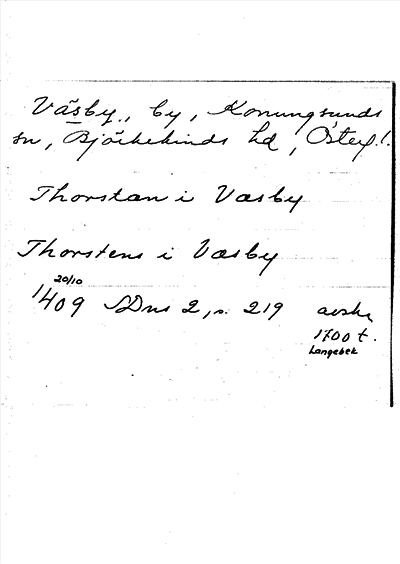 Väsby, by, Konungsunds
sn, Björkekinds hd, Österg.l.
Thorstan i Wæsby
Thorstens i Wæsby
20/10
1409 SDns 2, s. 219 avskr.
1700 t.
Langebek